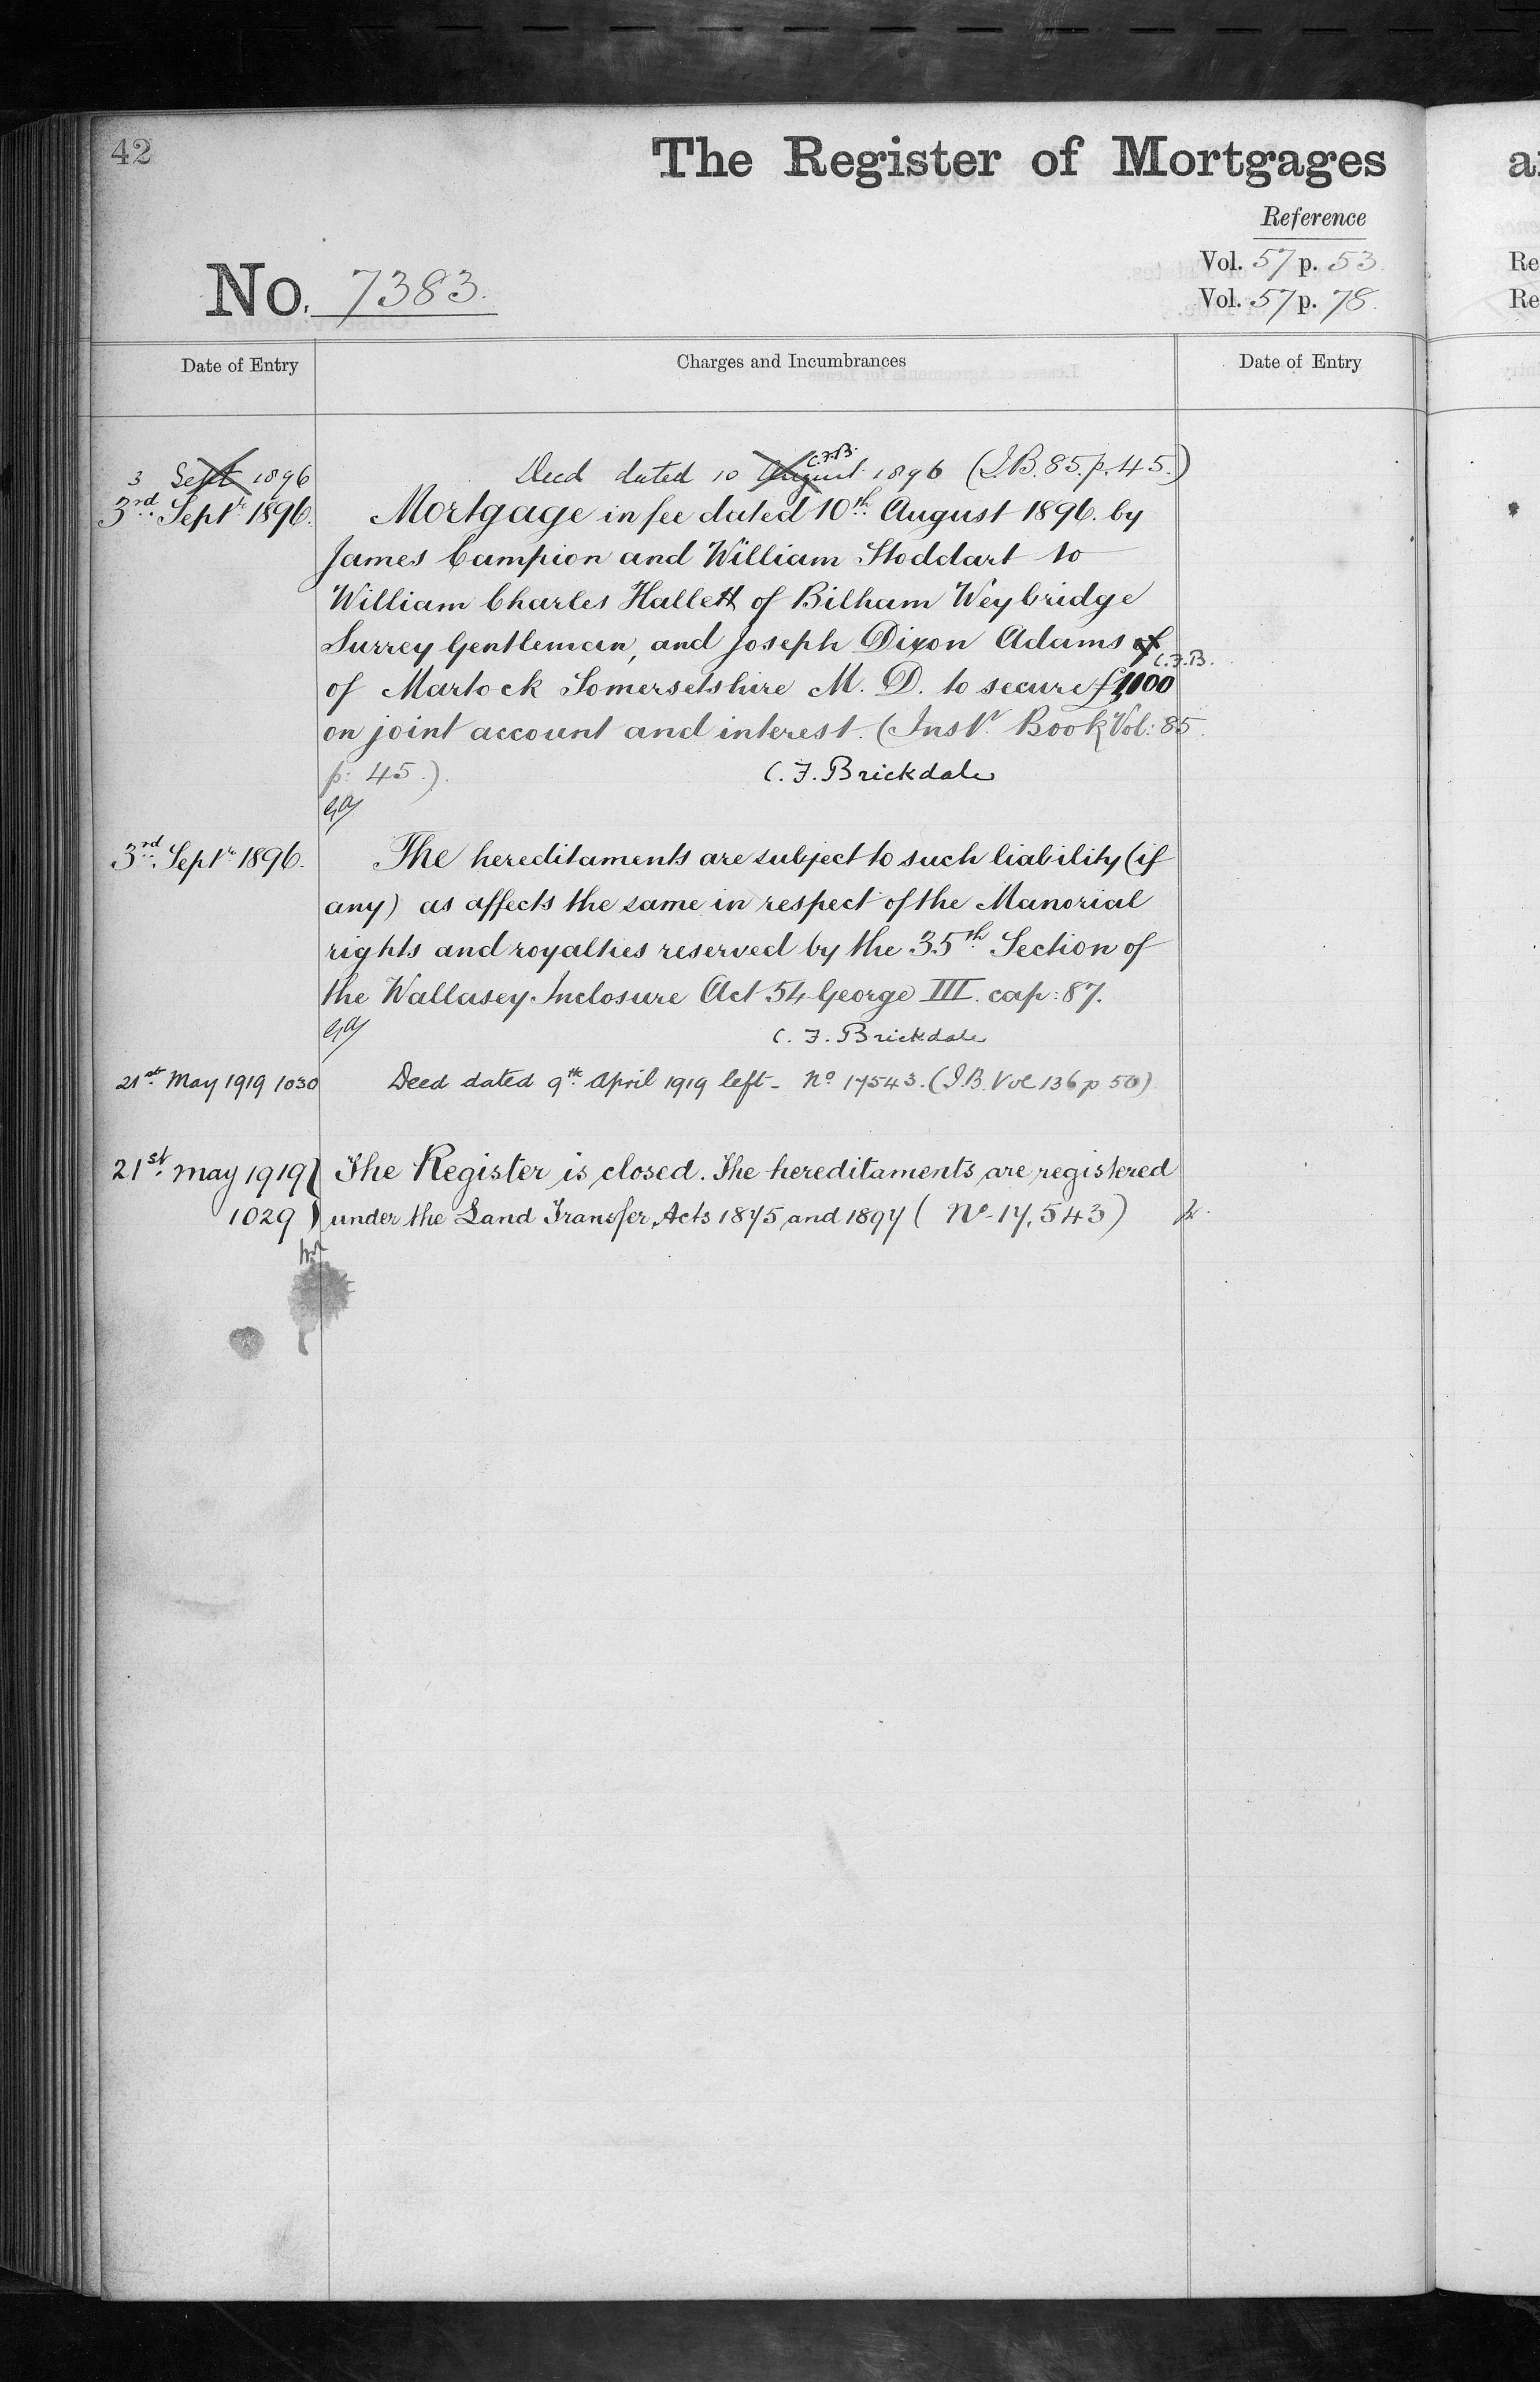 42
The Register of Mortgages
Reference
No. 7383.
Vol. 57 p. 53
Vol. 57 p. 78.
Re
Re
Date of Entry
Charges and Incumbrances
Date of Entry
3 Sept 1896 Deed dated 10 August 1896 (I.B. 85. p. 45.)
C.F.B.
3rd. Septr. 1896. Mortgage in fee dated 10th. August 1896. by
James Campion and William Stoddart to
William Charles Hallett of Bilham Weybridge
Surrey Gentleman, and Joseph Dixon Adams of
C.F.B.
of Martock Somersetshire M. D. to secure £1,100
on joint account and interest. (Instr. Book Vol: 85.
p: 45.) C. F. Brickdale
3rd. Septr. 1896. The hereditaments are subject to such liability (if
any) as affects the same in respect of the Manorial
rights and royalties reserved by the 35th. Section of
the Wallasey Inclosure Act 54 George III. cap: 87.
C. F. Brickdale
21st. May 1919 1030 Deed dated 9th. April 1919 left - No 17543. (I.B. Vol 136 p 50)
21st. May 1919 The Register is closed. The hereditaments are registered
1029 under the Land Transfer Acts 1875 and 1897 ( No - 17,543)